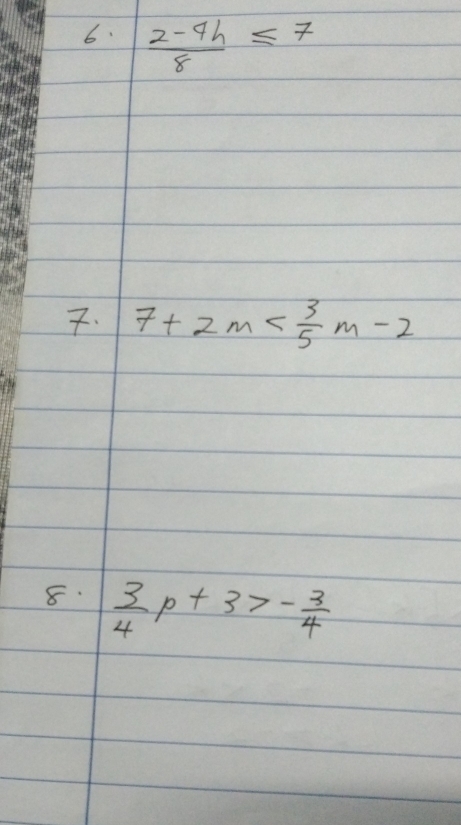 6. (2-4h)/8 ≤ 7
7. 7 + 2m < 3/5 m - 2
8. 3/4 p + 3 > - 3/4